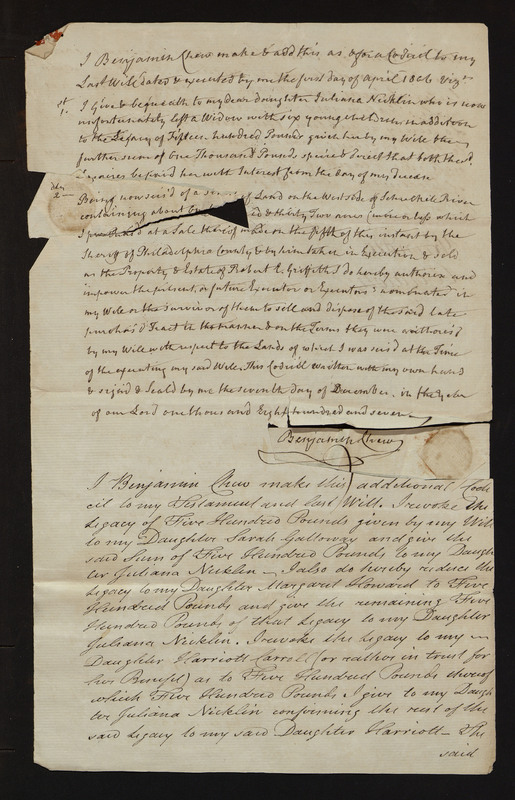 I Benjamin Chew make & add this as & for a Codicil to my
Last Will dated & executed by me the first day of April 1806 Viz.
1st. I Give & bequeath to my dear daughter Juliana Nicklin who is now
unfortunately left a Widow with six young children in addition
to the Legacy of Fifteen hundred Pounds given her by my Will the
further sum of One Thousand Pounds specie & direct that both the sd.
Legacies be paid her with Interest from the day of my decease
Being now seis'd of a of Land on the West side of Schuylkill River
containing about & thirty Two acres (more or less which
I purchas'd at a Sale thereof made on the fifth of this instant by the
Sheriff of Philadelphia County & by him taken in Execution & sold
as the Property & Estate of Robert E. Griffith I do hereby authorize and
impower the present, or future Executor or Executors nominated in
my Will or the Survivor of them to sell and dispose of the said late
purchas'd Tract in the manner & on the Terms they were authoris'd
by my Will with respect to the Lands of which I was seis'd at the Time
of the executing my said Will. This Codicill written with my own hand
& sign'd & Seald by me the seventh day of December, in the year
of our Lord one thousand Eight hundred and seven
Benjamin Chew
I Benjamin Chew make this additional Codi-
cil to my Testament and last Will. I revoke the
Legacy of Five Hundred Pounds given by my Will
to my Daughter Sarah Galloway and give the
said Sum of Five Hundred Pounds to my Daugh-
ter Juliana Nicklin. I also do hereby reduce the
Legacy to my Daughter Margaret Howard to Five
Hundred Pounds and give the remaining Five
Hundred Pounds of that Legacy to my Daughter
Juliana Nicklin. I revoke the Legacy to my
Daughter Harriott Carroll (or rather in trust for
her Benefit) as to Five Hundred Pounds thereof
which Five Hundred Pounds I give to my Daugh-
ter Juliana Nicklin confirming the rest of the
said Legacy to my said Daughter Harriott - The
said